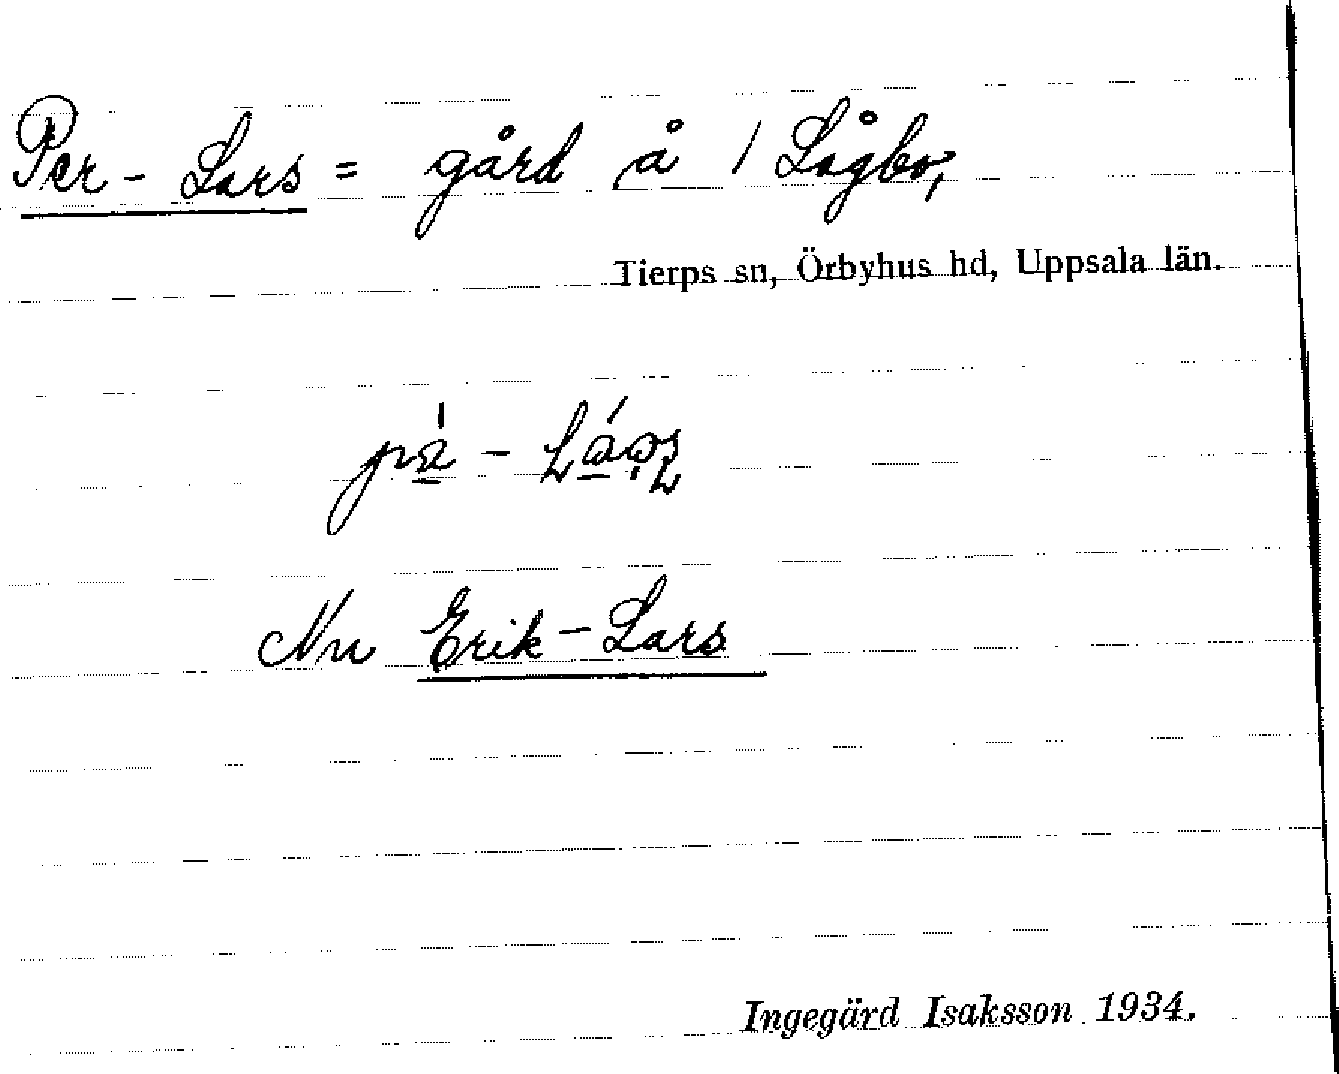 Per-Lars = gård å 1 Lågbo,
Tierps sn, Örbyhus hd, Uppsala län.
Nu Erik-Lars
Ingegärd Isaksson 1934.